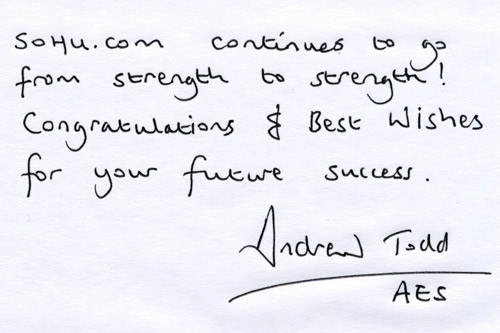 SOHU.com continues to go
from strength to strength!
Congratulations & Best Wishes
for your future success.
Andrew Todd
AES